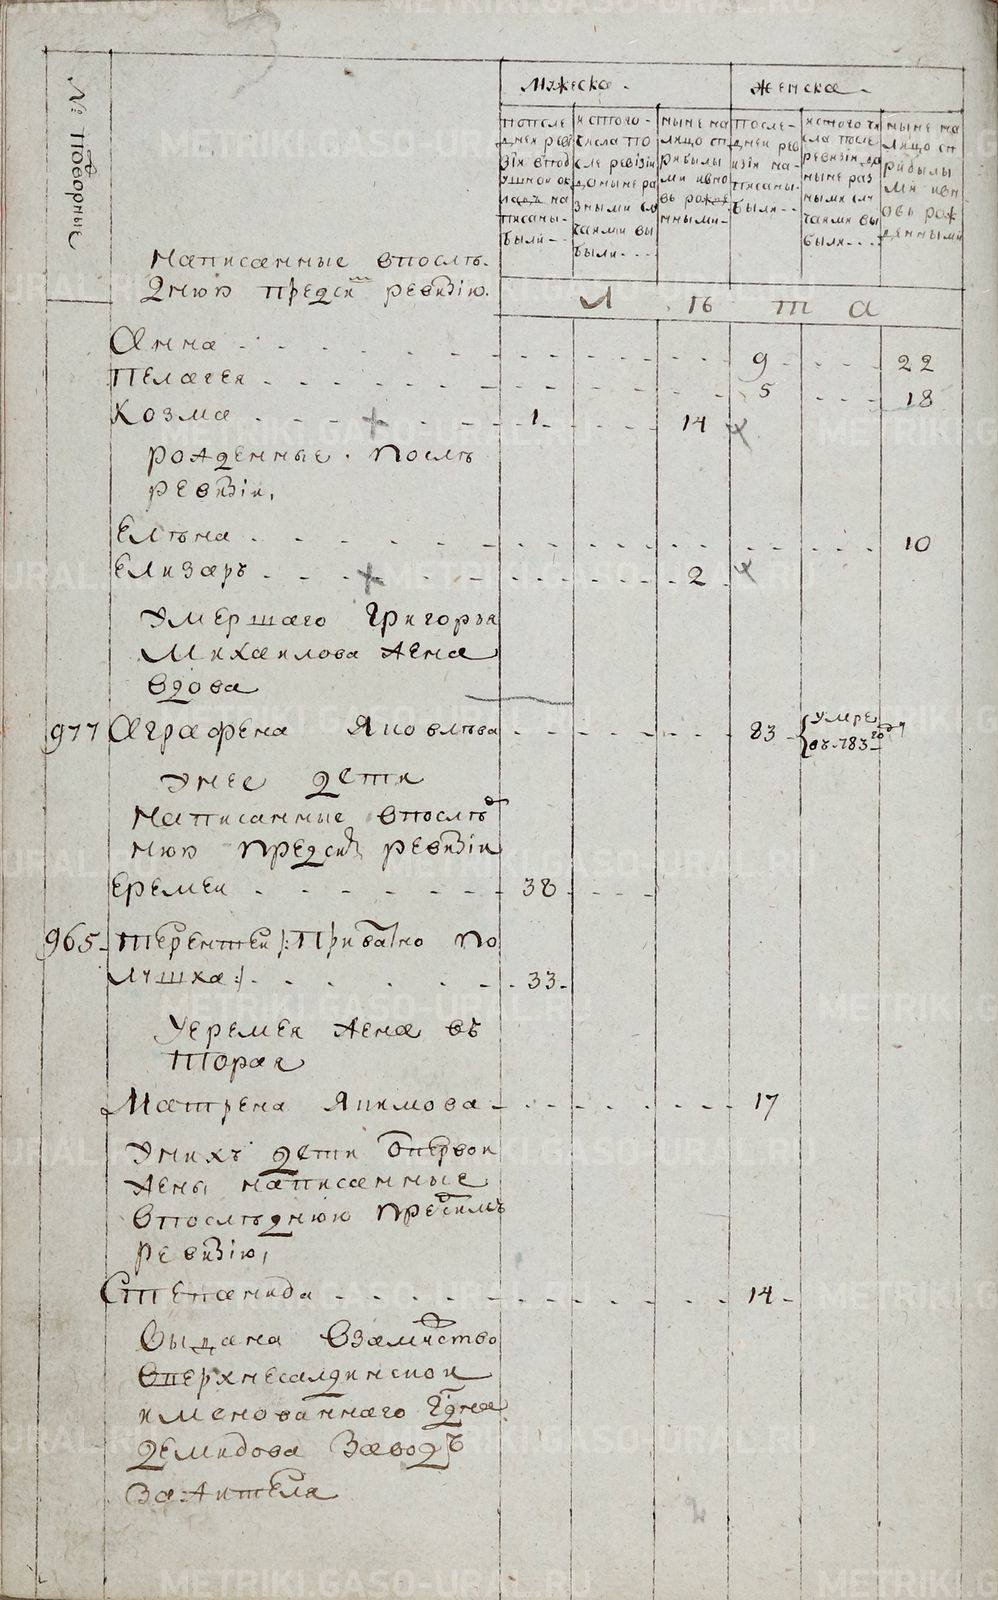 № подворные
Мужеска.
Женска.
попосле
дней реви
зіи впод
ушной ок
ладъ на
писаны
были
истого
числа по
сле ревизіи
доныне ра
зными слу
чаями вы
были
ныне на
лицо сп
рибылы
ми ивно
вь рож
нными
после
дней рев
изіи на
писаны
были
истого чи
сла после
ревизіи до
ныне раз
ными слу
чаями вы
были
ныне на
лицо сп
рибылы
ми ивн
овь рож
денными
написанные впослѣ
днюю предсию ревизію.
Л ѣ т а
Анна 9 22
Пелагея 5 18
Козма 1 14
рожденные послѣ
ревизіи,
Елѣна 10
Елизаръ 2
Умершаго Григорья
Михаилова жена
вдова
977 Аграфена Яковлѣва 83 умре въ 783 году
Унее дети
написанные впослѣд
нюю предсию ревизіи
Еремей 38
965 Терентей /: Приватно по
лушка :/ 33
Уеремея жена въ
торая
Матрена Якимова 17
Унихъ дети отпервои
жены написанные
впослѣднюю предсимъ
ревизію,
Степанида 14
выдана взамужство
вверхнесалдинской
именованнаго Гдна
Демидова Заводъ
зажителя